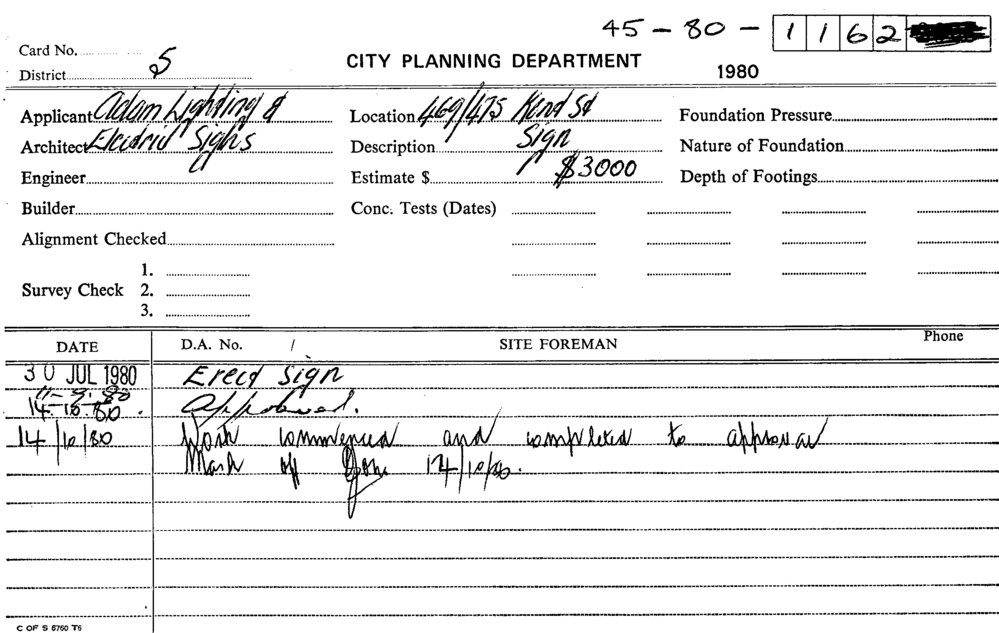 45 - 80 - 1162
Card No.
District 5
CITY PLANNING DEPARTMENT
1980
Applicant Adam Lighting &
Location 469/475 Kent St
Foundation Pressure
Architect Electric Signs
Description Sign
Nature of Foundation
Engineer
Estimate $ $3000
Depth of Footings
Builder
Conc. Tests (Dates)
Alignment Checked
Survey Check 1.
2.
3.
DATE D.A. No. / SITE FOREMAN Phone
30 JUL 1980 Erect Sign
11-9-80
14-10-80. Approved.
14/10/80 Work commenced and completed to approval
Mark off 14/10/80.
C OF S 6760 T6